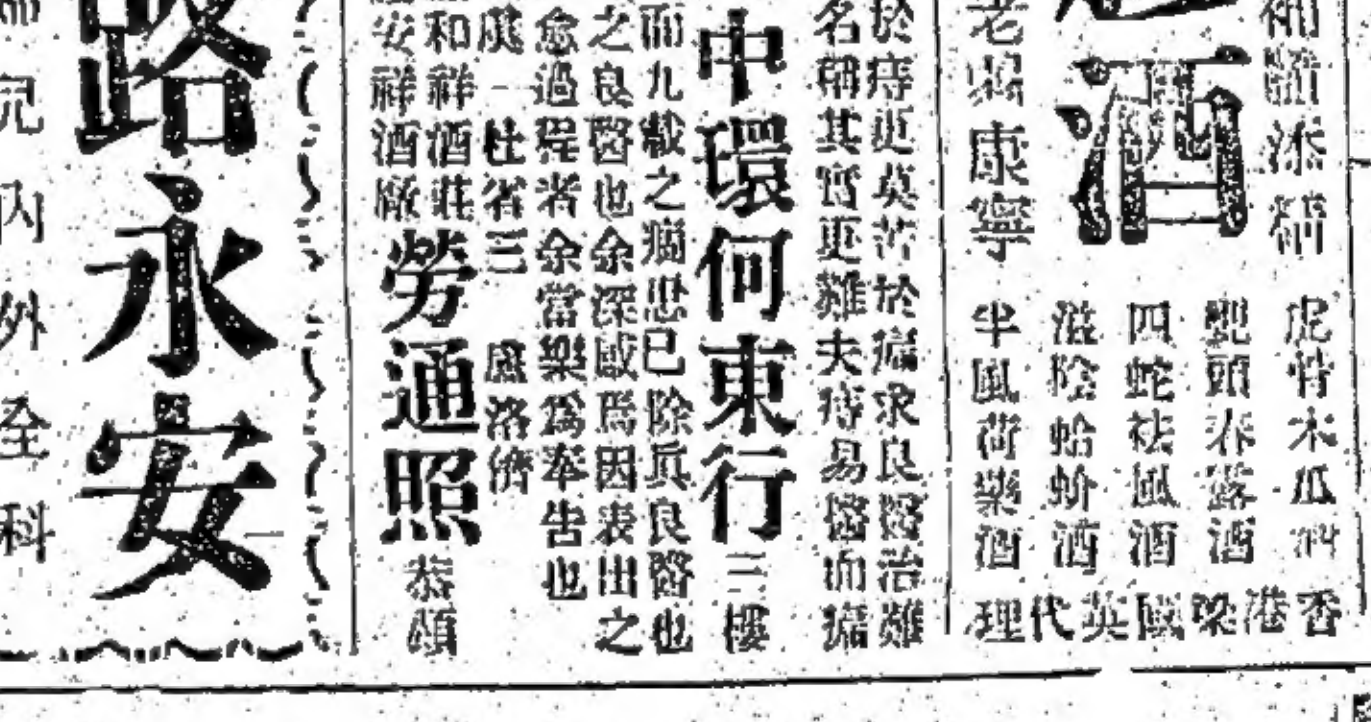 補髓添精
酒
老弱康寧
虎骨木瓜酒
甕頭春露酒
四蛇祛風酒
滋陰蛤蚧酒
半風荷藥酒
香港梁國英代理
於痔更莫苦於瘺求良醫治難
名稱其實更難夫痔易醫而瘺
中環何東行三樓
而九載之瘺患已除眞良醫也
之良醫也余深感焉因表出之
愈過程者余當樂爲奉告也
虞一杜省三 盛洛儕
和祥酒莊
安祥酒廠
勞通照
恭頌
路永安
內外全科